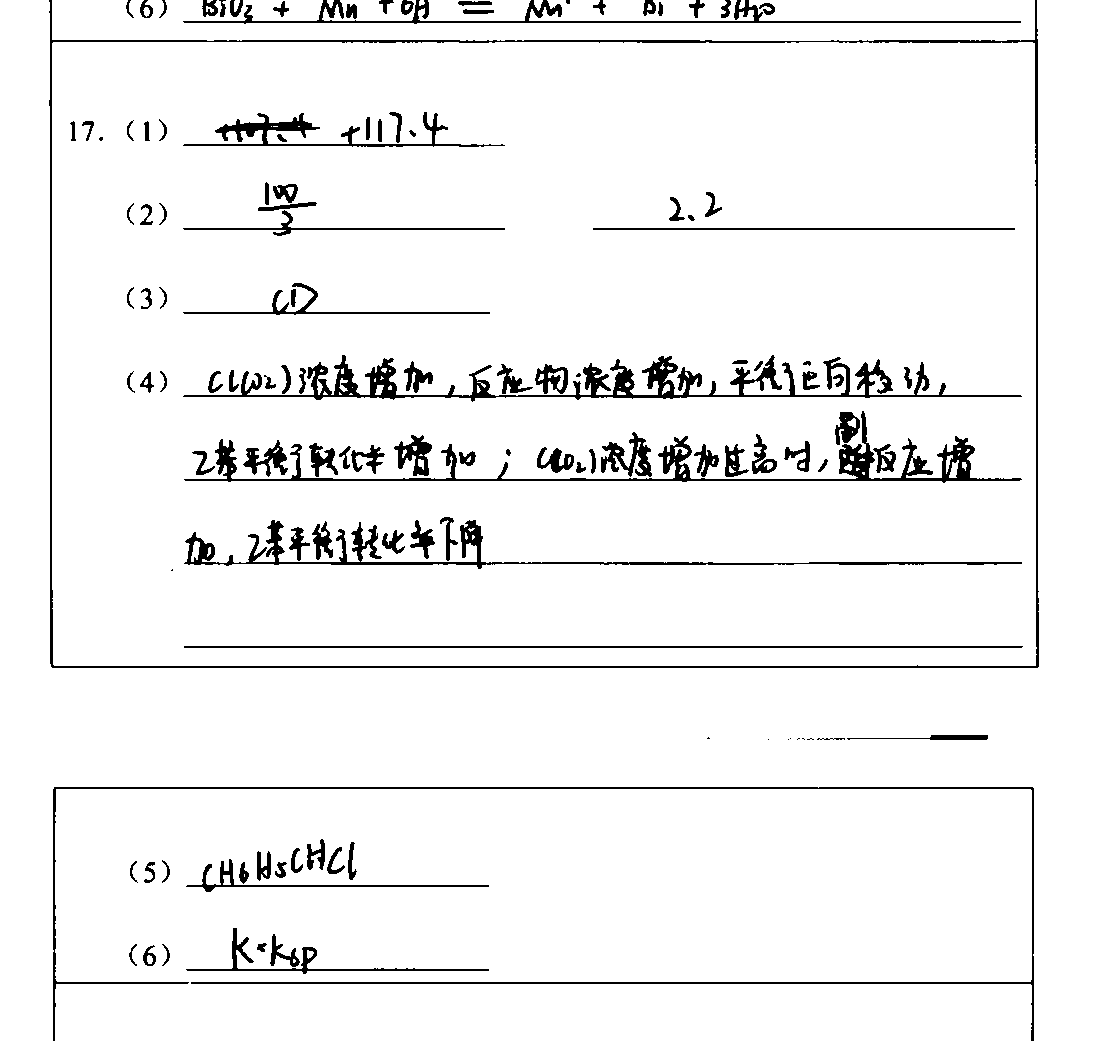 (6) BiO₃ + Mn + 6H = Mn + Bi + 3H₂O
17. (1) +117.4
(2) 100/3 2.2
(3) CD
(4) C(CO₂)浓度增加,反应物浓度增加,平衡正向移动,
乙苯平衡转化率增加;C(CO₂)浓度增加过高时,副反应增
加,乙苯平衡转化率下降
(5) CH6H5CHCl
(6) K=Ksp